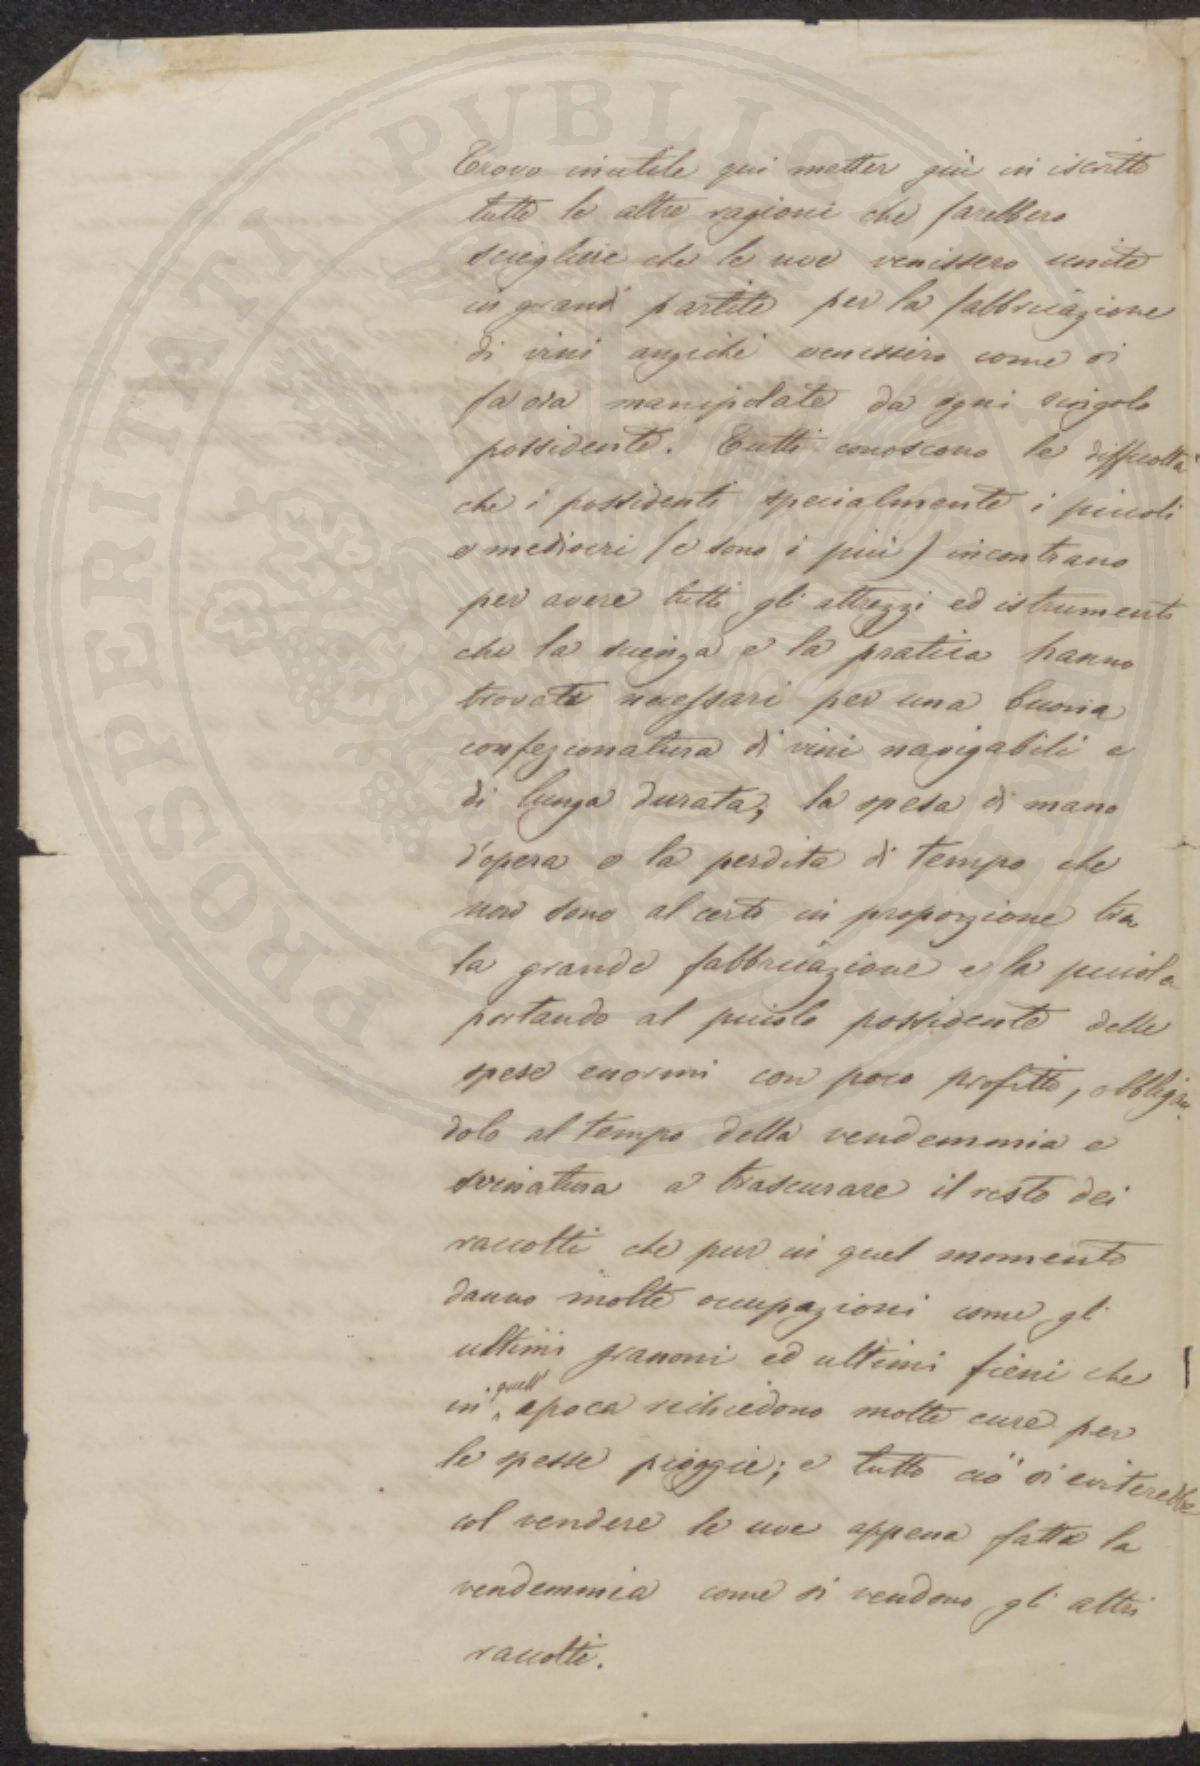 Trovo inutile qui metter giù in iscritto
tutte le altre ragioni che farebbero
scegliere che le uve venissero unite
in grandi partite per la fabbricazione
di vini anzichè venissero come si
fa ora manipolate da ogni singolo
possidente. Tutti conoscono le difficoltà
che i possidenti specialmente i piccoli
e mediocri (e sono i più) incontrano
per avere tutti gli attrezzi ed istrumenti
che la scienza e la pratica hanno
trovate necessari per una buona
confezionatura di vini navigabili e
di lunga durata; la spesa di mano
d'opera e la perdita di tempo che
non sono al certo in proporzione tra
la grande fabbricazione e la piccola
portando al piccolo possidente delle
spese enormi con poco profitto, obbligan
dolo al tempo della vendemmia e
svinatura a trascurare il resto dei
raccolti che pur in quel momento
danno molte occupazioni come gli
ultimi granoni ed ultimi fieni che
in quell' epoca richiedono molte cure per
le spesse pioggie; e tutto ciò si eviterebbe
col vendere le uve appena fatta la
vendemmia come si vendono gli altri
raccolti.
PROSPERITATI PUBLICAE